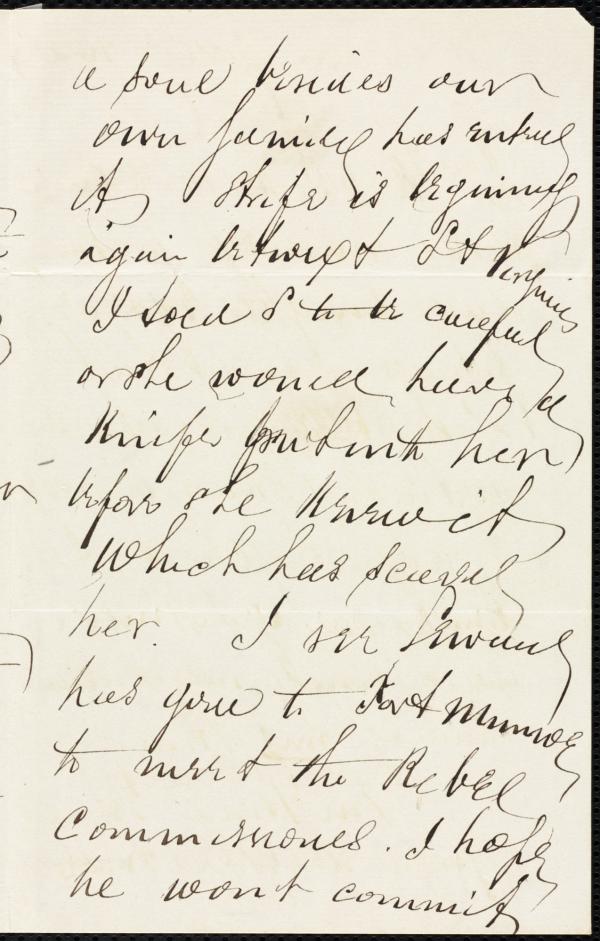 a soul besides our
own family has entered
it. Strife is beginning
again betwixt S & Virginia
I told S to be careful
or she would have a
Knife put into her
before she knew it
which has scared
her. I see Seward
has gone to Fort Munroe
to meet the Rebel
Commissiones. I hope
he wont commit